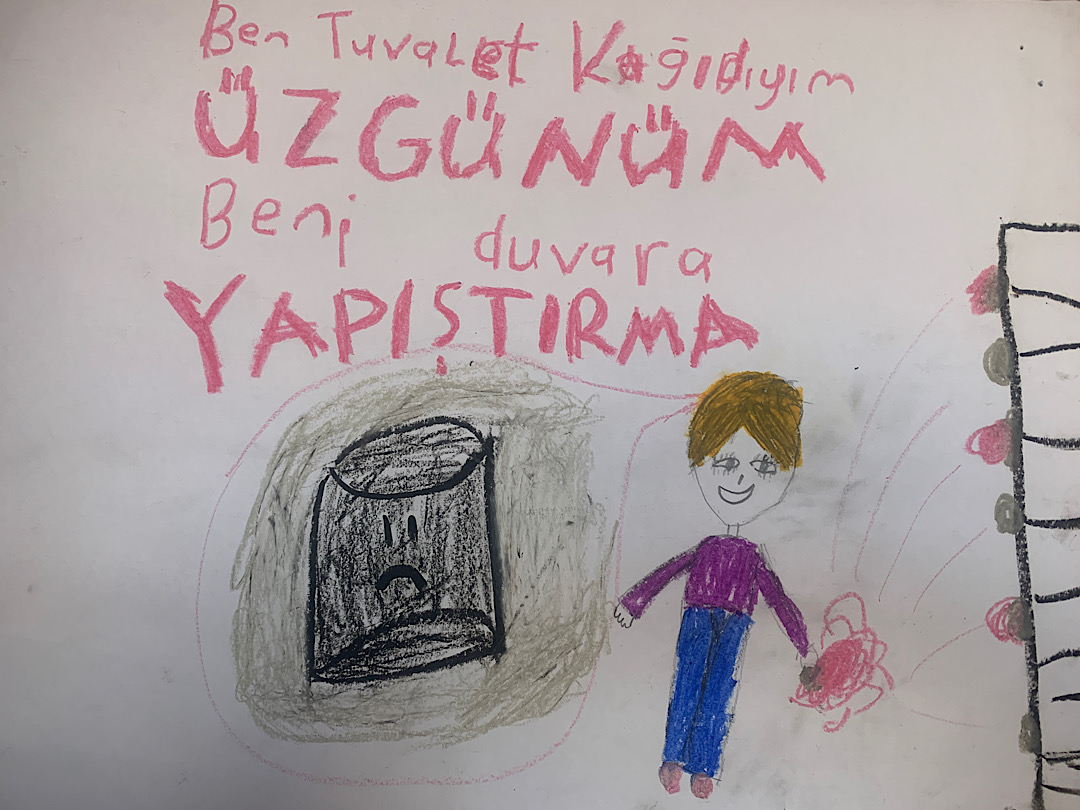 Ben Tuvalet Kağıdıyım
ÜZGÜNÜM
Beni duvara
YAPIŞTIRMA